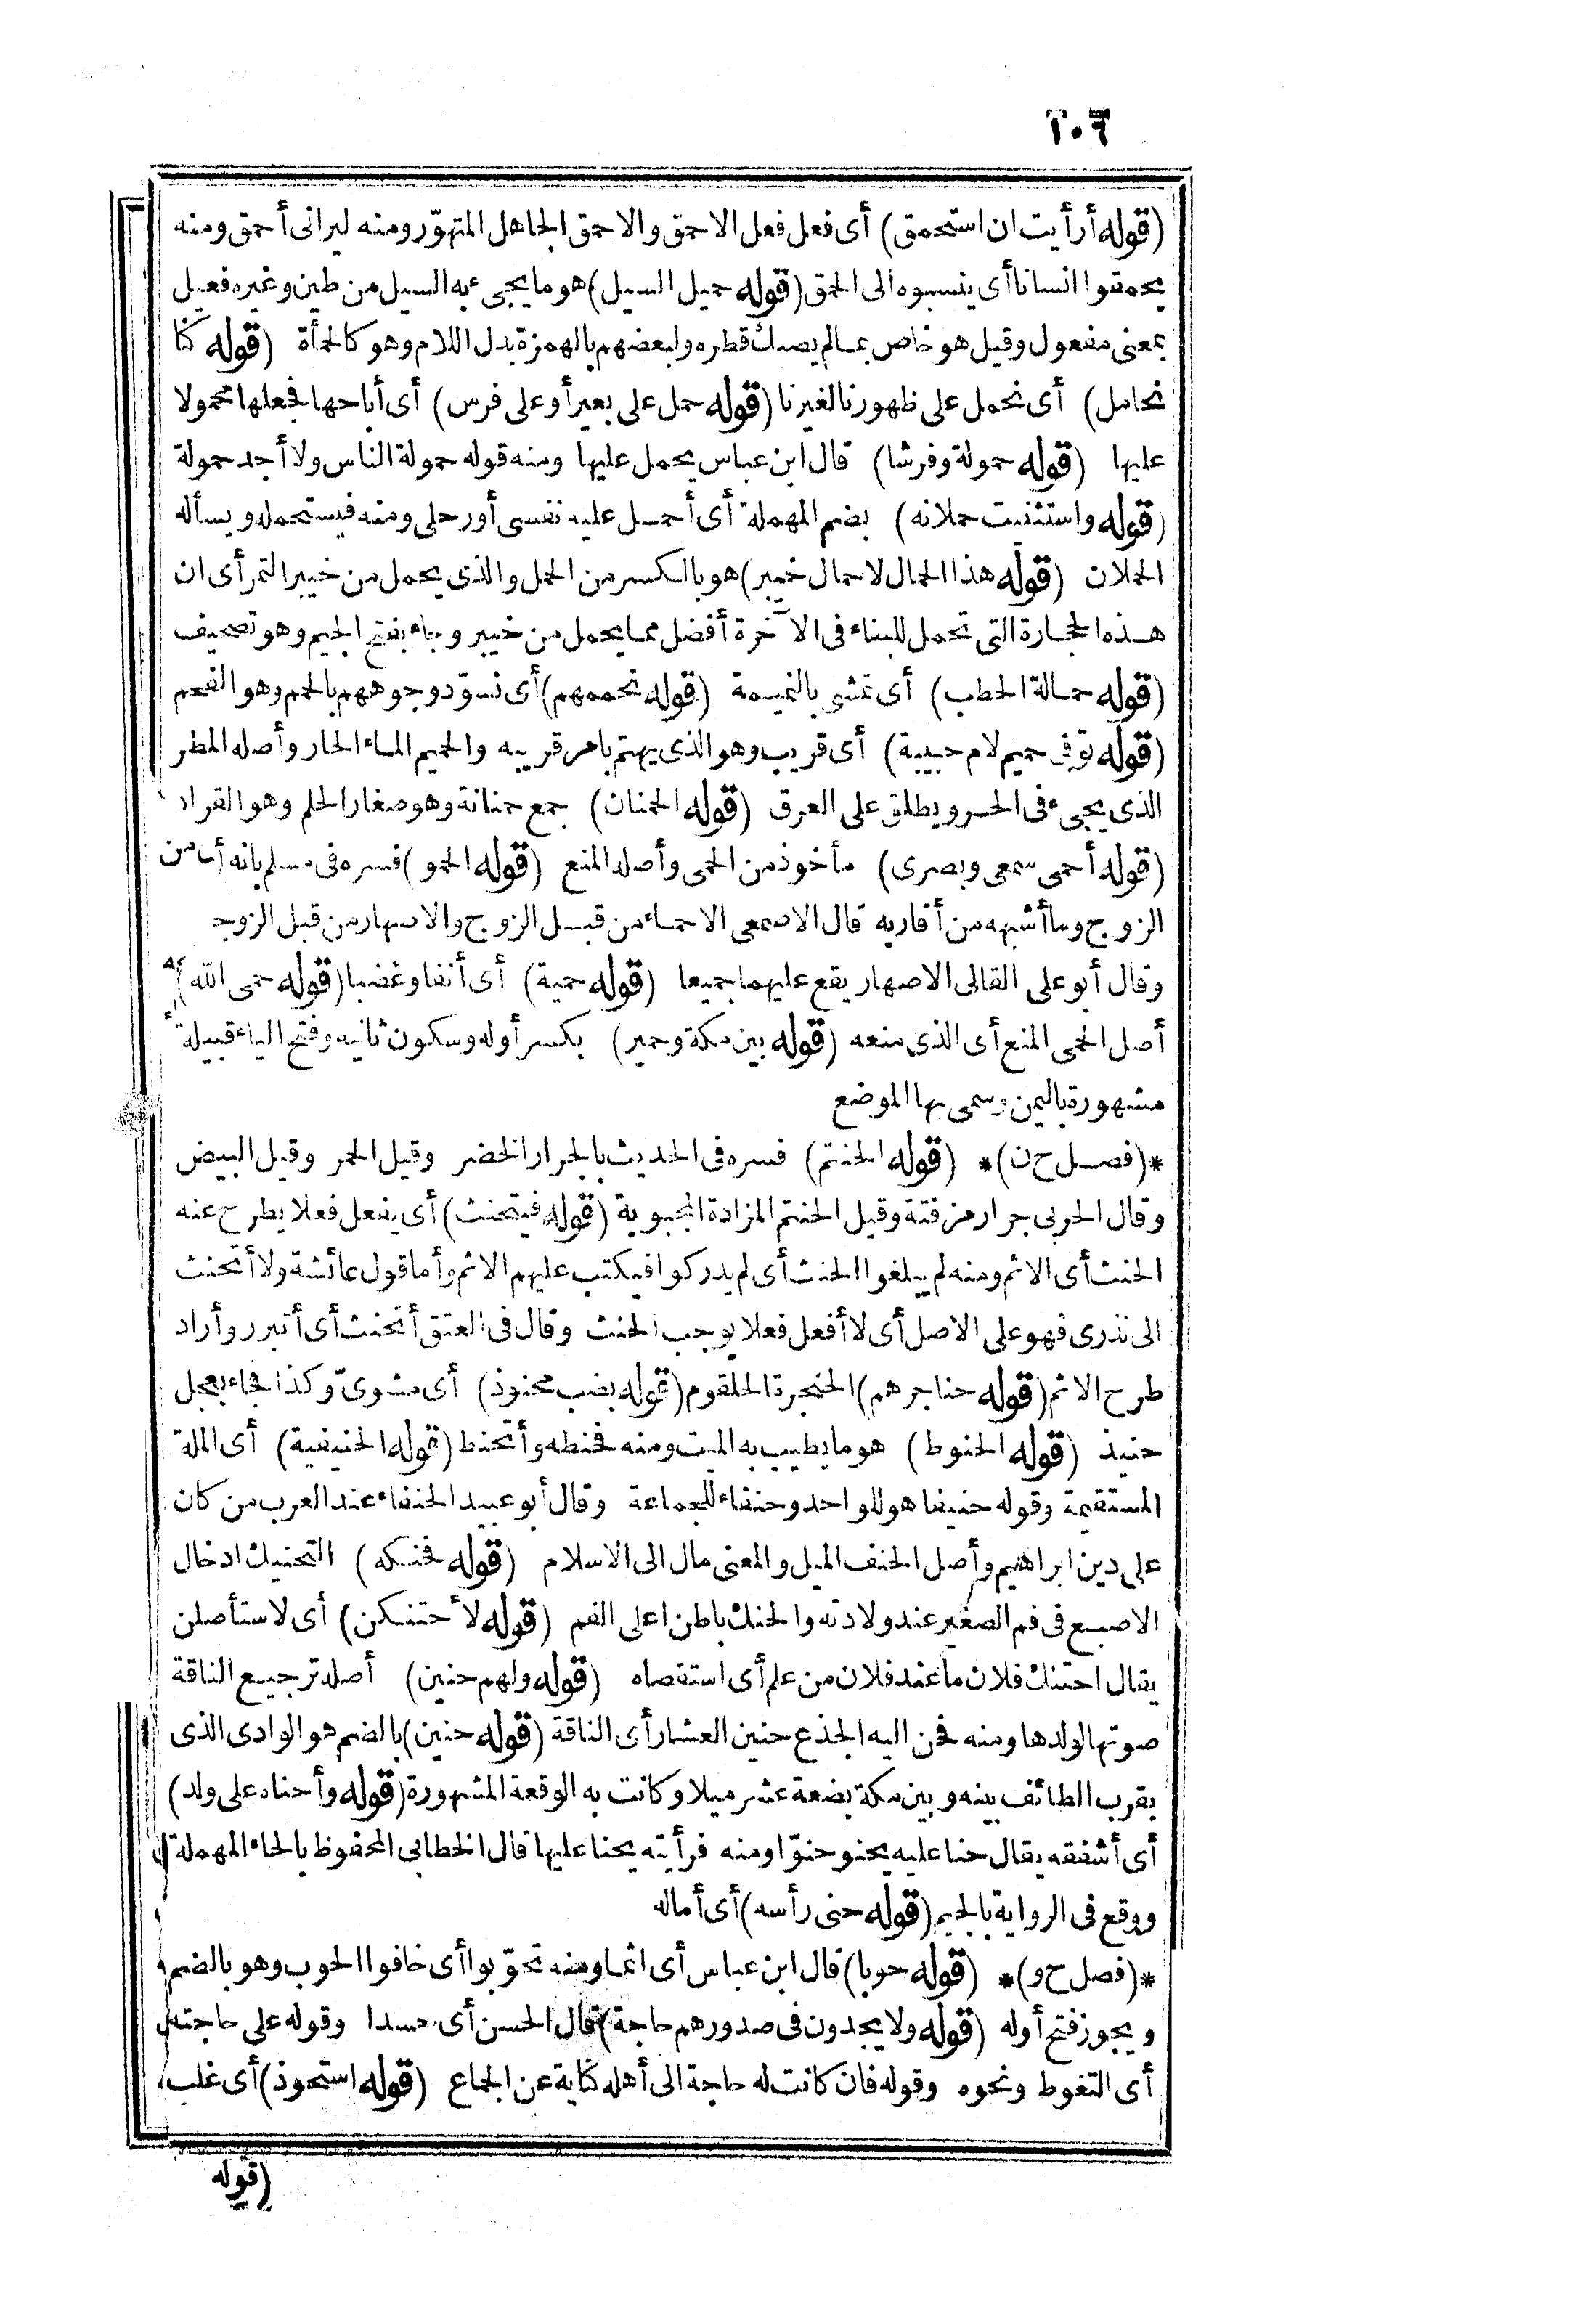 ١٠٦
(قوله أرأيت ان استحمق) أى فعل فعل الاحمق والاحمق الجاهل المتهوّر ومنه ليرانى أحمق ومنه
يحمقوا انسانا أى ينسبوه الى الحمق (قوله حميل السيل) هو ما يجىء به السيل من طين وغيره فعيل
بمعنى مفعول وقيل هو خاص بمالم يصبك قطره ولبعضهم بالهمزة بدل اللام وهو كالحمأة (قوله كنا
نحامل) أى نحمل على ظهورنا لغيرنا (قوله حمل على بعير أو على فرس) أى أباحها فجعلها محمولا
عليها (قوله حمولة وفرشا) قال ابن عباس يحمل عليها ومنه قوله حمولة الناس ولا أجد حمولة
(قوله واستثنيت حملانه) بضم المهملة أى أحمل عليه نفسى أو رحلى ومنه فيستحمله ويسأله
الحملان (قوله هذا الحمال لا حمال خيبر) هو بالكسر من الحمل والذى يحمل من خيبر التمر أى ان
هذه الحجارة التى تحمل للبناء فى الآخرة أفضل مما يحمل من خيبر وجاء بفتح الجيم وهو تصحيف
(قوله حمالة الحطب) أى تمشى بالنميمة (قوله نحممهم) أى نسوّد وجوههم بالحمم وهو الفحم
(قوله توفى حميم لام حبيبة) أى قريب وهو الذى يهتم بامر قريبه والحميم الماء الحار وأصله المطر
الذى يجىء فى الحر ويطلق على العرق (قوله الحمنان) جمع حمنانة وهو صغار الحلم وهو القراد
(قوله أحمى سمعى وبصرى) مأخوذ من الحمى وأصله المنع (قوله الحمو) فسره فى مسلم بانه من
الزوج وما أشبهه من أقاربه قال الاصمعى الاحماء من قبل الزوج والاصهار من قبل الزوج
وقال أبو على القالى الاصهار يقع عليهما جميعا (قوله حمية) أى أنفا وغضبا (قوله حمى الله)
أصل الحمى المنع أى الذى منعه (قوله بين مكة وحمير) بكسر أوله وسكون ثانيه وفتح الياء قبيلة
مشهورة باليمن وسمى بها الموضع
*(فصل ح ن)* (قوله الحنتم) فسره فى الحديث بالجرار الخضر وقيل الحمر وقيل البيض
وقال الحربى جرار مزفتة وقيل الحنتم المزادة المجبوبة (قوله فيتحنث) أى يفعل فعلا يطرح عنه
الحنث أى الاثم ومنه لم يبلغوا الحنث أى لم يدركوا فيكتب عليهم الاثم وأما قول عائشة ولا أتحنث
الى نذرى فهو على الاصل أى لا أفعل فعلا يوجب الحنث وقال فى العتق أتحنث أى أتبرر وأراد
طرح الاثم (قوله حناجرهم) الحنجرة الحلقوم (قوله بضب محنوذ) أى مشوىّ وكذا فجاء بعجل
حنيذ (قوله الحنوط) هو ما يطيب به الميت ومنه فحنطه وأتحنط (قوله الحنيفية) أى الملة
المستقيمة وقوله حنيفا هو للواحد وحنفاء للجماعة وقال أبو عبيد الحنفاء عند العرب من كان
على دين ابراهيم وأصل الحنف الميل والمعنى مال الى الاسلام (قوله فحنكه) التحنيك ادخال
الاصبع فى فم الصغير عند ولادته والحنك باطن اعلى الفم (قوله لأحتنكن) أى لاستأصلن
يقال احتنك فلان ما عند فلان من علم أى استقصاه (قوله ولهم حنين) أصله ترجيع الناقة
صوتها لولدها ومنه فحن اليه الجذع حنين العشار أى الناقة (قوله حنين) بالضم هو الوادى الذى
بقرب الطائف بينه وبين مكة بضعة عشر ميلا وكانت به الوقعة المشهورة (قوله وأحناه على ولد)
أى أشفقه يقال حنا عليه يحنو حنوّا ومنه فرأيته يحنا عليها قال الخطابى المحفوظ بالحاء المهملة
ووقع فى الرواية بالجيم (قوله حنى رأسه) أى أماله
*(فصل ح و)* (قوله حوبا) قال ابن عباس أى اثما ومنه تحوّبوا أى خافوا الحوب وهو بالضم
ويجوز فتح أوله (قوله ولا يجدون فى صدورهم حاجة) قال الحسن أى حسدا وقوله على حاجته
أى التغوط ونحوه وقوله فان كانت له حاجة الى أهله كناية عن الجماع (قوله استحوذ) أى غلب
(قوله